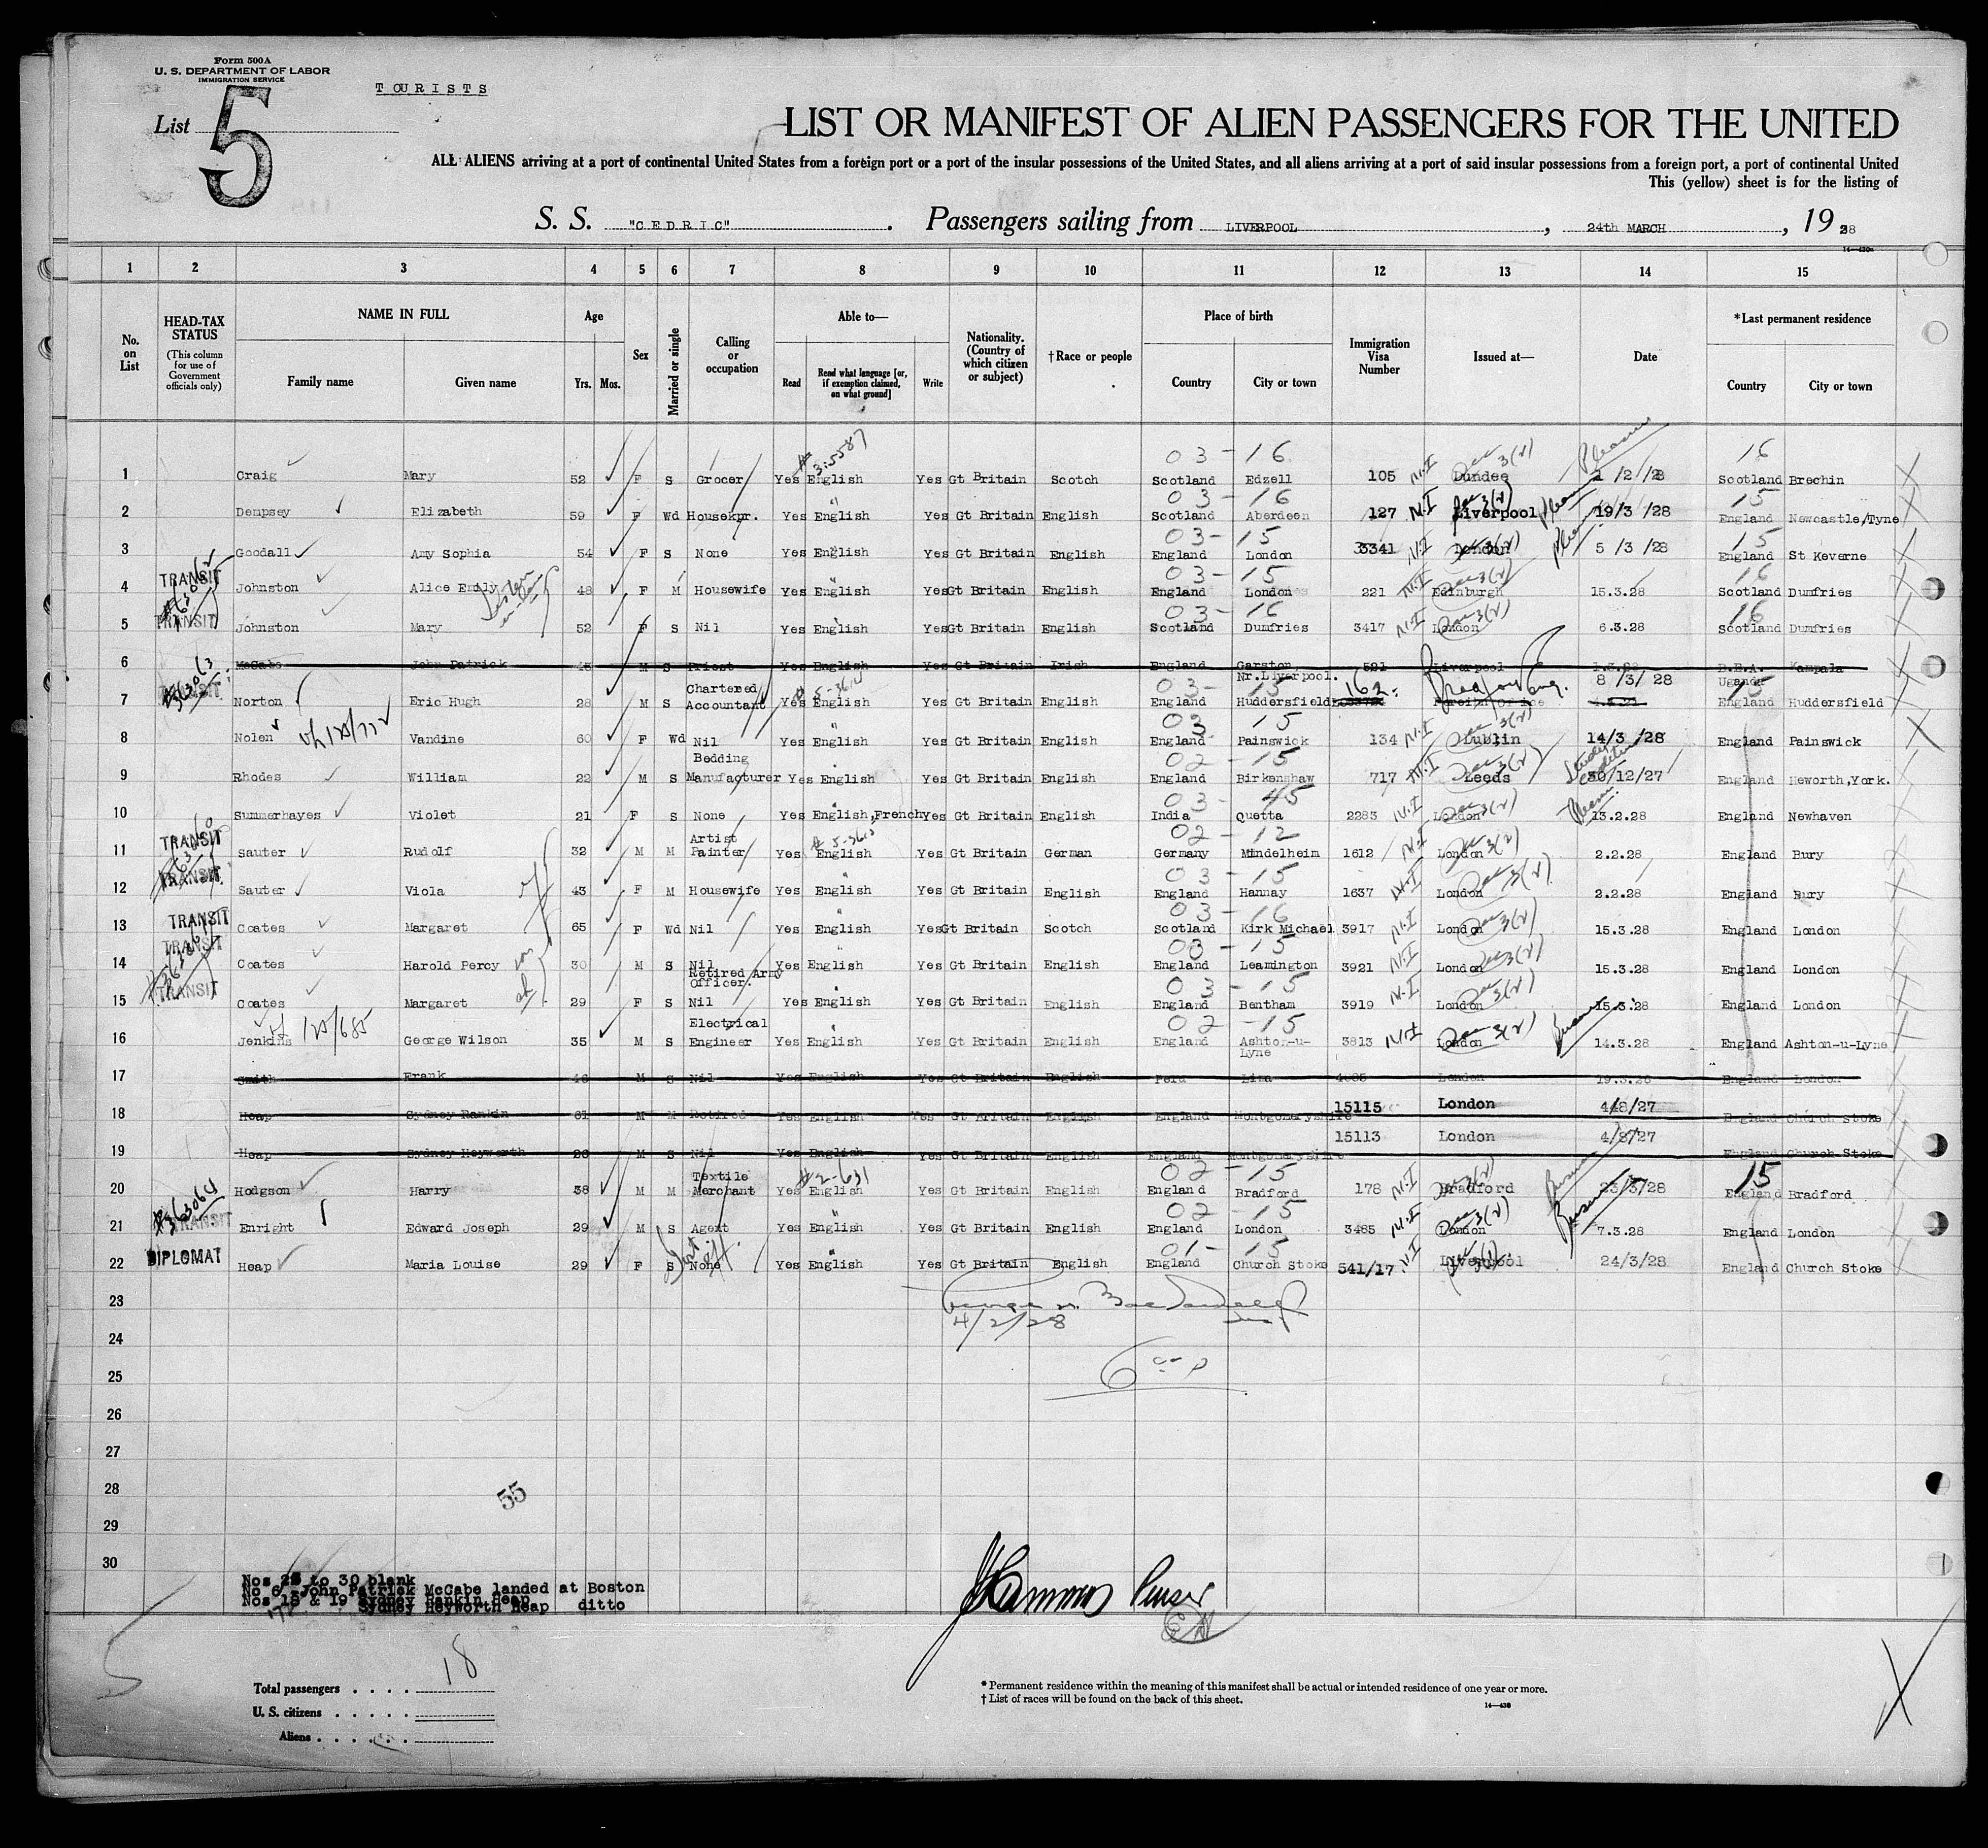 Form 500A
U. S. DEPARTMENT OF LABOR
IMMIGRATION SERVICE
TOURISTS
List 5
LIST OR MANIFEST OF ALIEN PASSENGERS FOR THE UNITED
ALL ALIENS arriving at a port of continental United States from a foreign port or a port of the insular possessions of the United States, and all aliens arriving at a port of said insular possessions from a foreign port, a port of continental United
This (yellow) sheet is for the listing of
S. S. "CEDRIC". Passengers sailing from LIVERPOOL, 24th MARCH, 1928
1 2 3 4 5 6 7 8 9 10 11 12 13 14 15
No. on List
HEAD-TAX STATUS (This column for use of Government officials only)
NAME IN FULL
Family name Given name
Age Yrs. Mos.
Sex
Married or single
Calling or occupation
Able to—
Read Read what language [or, if exemption claimed, on what ground] Write
Nationality. (Country of which citizen or subject)
†Race or people
Place of birth
Country City or town
Immigration Visa Number
Issued at—
Date
*Last permanent residence
Country City or town
03-16 16
1 Craig Mary 52 F S Grocer Yes English Yes Gt Britain Scotch Scotland Edzell 105 Dundee /2/28 Scotland Brechin
03-16 15
2 Dempsey Elizabeth 59 F Wd Housekpr. Yes English Yes Gt Britain English Scotland Aberdeen 127 Liverpool 19/3/28 England Newcastle/Tyne
03-15 15
3 Goodall Amy Sophia 54 F S None Yes English Yes Gt Britain English England London 3341 London 5/3/28 England St Keverne
TRANSIT 03-15 16
4 Johnston Alice Emily 48 F M Housewife Yes English Yes Gt Britain English England London 221 Edinburgh 15.3.28 Scotland Dumfries
TRANSIT 03-16 16
5 Johnston Mary 52 F S Nil Yes English Yes Gt Britain English Scotland Dumfries 3417 London 6.3.28 Scotland Dumfries
6 McCabe John Patrick 45 M S Priest Yes English Yes Gt Britain Irish England Garston Nr.Liverpool. 591 Liverpool 1.3.28 B.E.A. Uganda Kampala
03-15 162. 8/3/28 15
7 Norton Eric Hugh 28 M S Chartered Accountant Yes English Yes Gt Britain English England Huddersfield Foreign Office England Huddersfield
03 15
8 Nolen Vandine 60 F Wd Nil Yes English Yes Gt Britain English England Painswick 134 Dublin 14/3/28 England Painswick
02-15
9 Rhodes William 22 M S Bedding Manufacturer Yes English Yes Gt Britain English England Birkenshaw 717 Leeds 30/12/27 England Heworth,York.
03-45
10 Summerhayes Violet 21 F S None Yes English,French Yes Gt Britain English India Quetta 2283 London 13.2.28 England Newhaven
TRANSIT 02-12
11 Sauter Rudolf 32 M M Artist Painter Yes English Yes Gt Britain German Germany Mindelheim 1612 London 2.2.28 England Bury
TRANSIT 03-15
12 Sauter Viola 43 F M Housewife Yes English Yes Gt Britain English England Hannay 1637 London 2.2.28 England Bury
TRANSIT 03-16
13 Coates Margaret 65 F Wd Nil Yes English Yes Gt Britain Scotch Scotland Kirk Michael 3917 London 15.3.28 England London
TRANSIT 03-15
14 Coates Harold Percy 30 M S Nil Retired Army Officer. Yes English Yes Gt Britain English England Leamington 3921 London 15.3.28 England London
TRANSIT 03-15
15 Coates Margaret 29 F S Nil Yes English Yes Gt Britain English England Bentham 3919 London 15.3.28 England London
02-15
16 Jenkins George Wilson 35 M S Electrical Engineer Yes English Yes Gt Britain English England Ashton-u-Lyne 3813 London 14.3.28 England Ashton-u-Lyne
17 Smith Frank 46 M S Nil Yes English Yes Gt Britain English Peru Lima London 19.3.28 England London
18 Heap Sydney Rankin 61 M M Retired Yes English Yes Gt Britain English England Montgomeryshire 15115 London 4/8/27 England Church Stoke
19 Heap Sydney Heyworth 26 M S Nil Yes English Yes Gt Britain English England Montgomeryshire 15113 London 4/8/27 England Church Stoke
02-15 15
20 Hodgson Harry 38 M M Textile Merchant Yes English Yes Gt Britain English England Bradford 178 Bradford 23/3/28 England Bradford
TRANSIT 02-15
21 Enright Edward Joseph 29 M S Agent Yes English Yes Gt Britain English England London 3485 London 7.3.28 England London
DIPLOMAT 01-15
22 Heap Maria Louise 29 F S None Yes English Yes Gt Britain English England Church Stoke 541/17 Liverpool 24/3/28 England Church Stoke
23
4/2/28
24
25
26
27
28
55
29
30
Nos 23 to 30 blank
No 6 John Patrick McCabe landed at Boston
Nos 18 & 19 Sydney Rankin Heap
Sydney Heyworth Heap ditto
Purser
Total passengers . . . . 18
U. S. citizens . . . . .
Aliens . . . . . .
* Permanent residence within the meaning of this manifest shall be actual or intended residence of one year or more.
† List of races will be found on the back of this sheet.